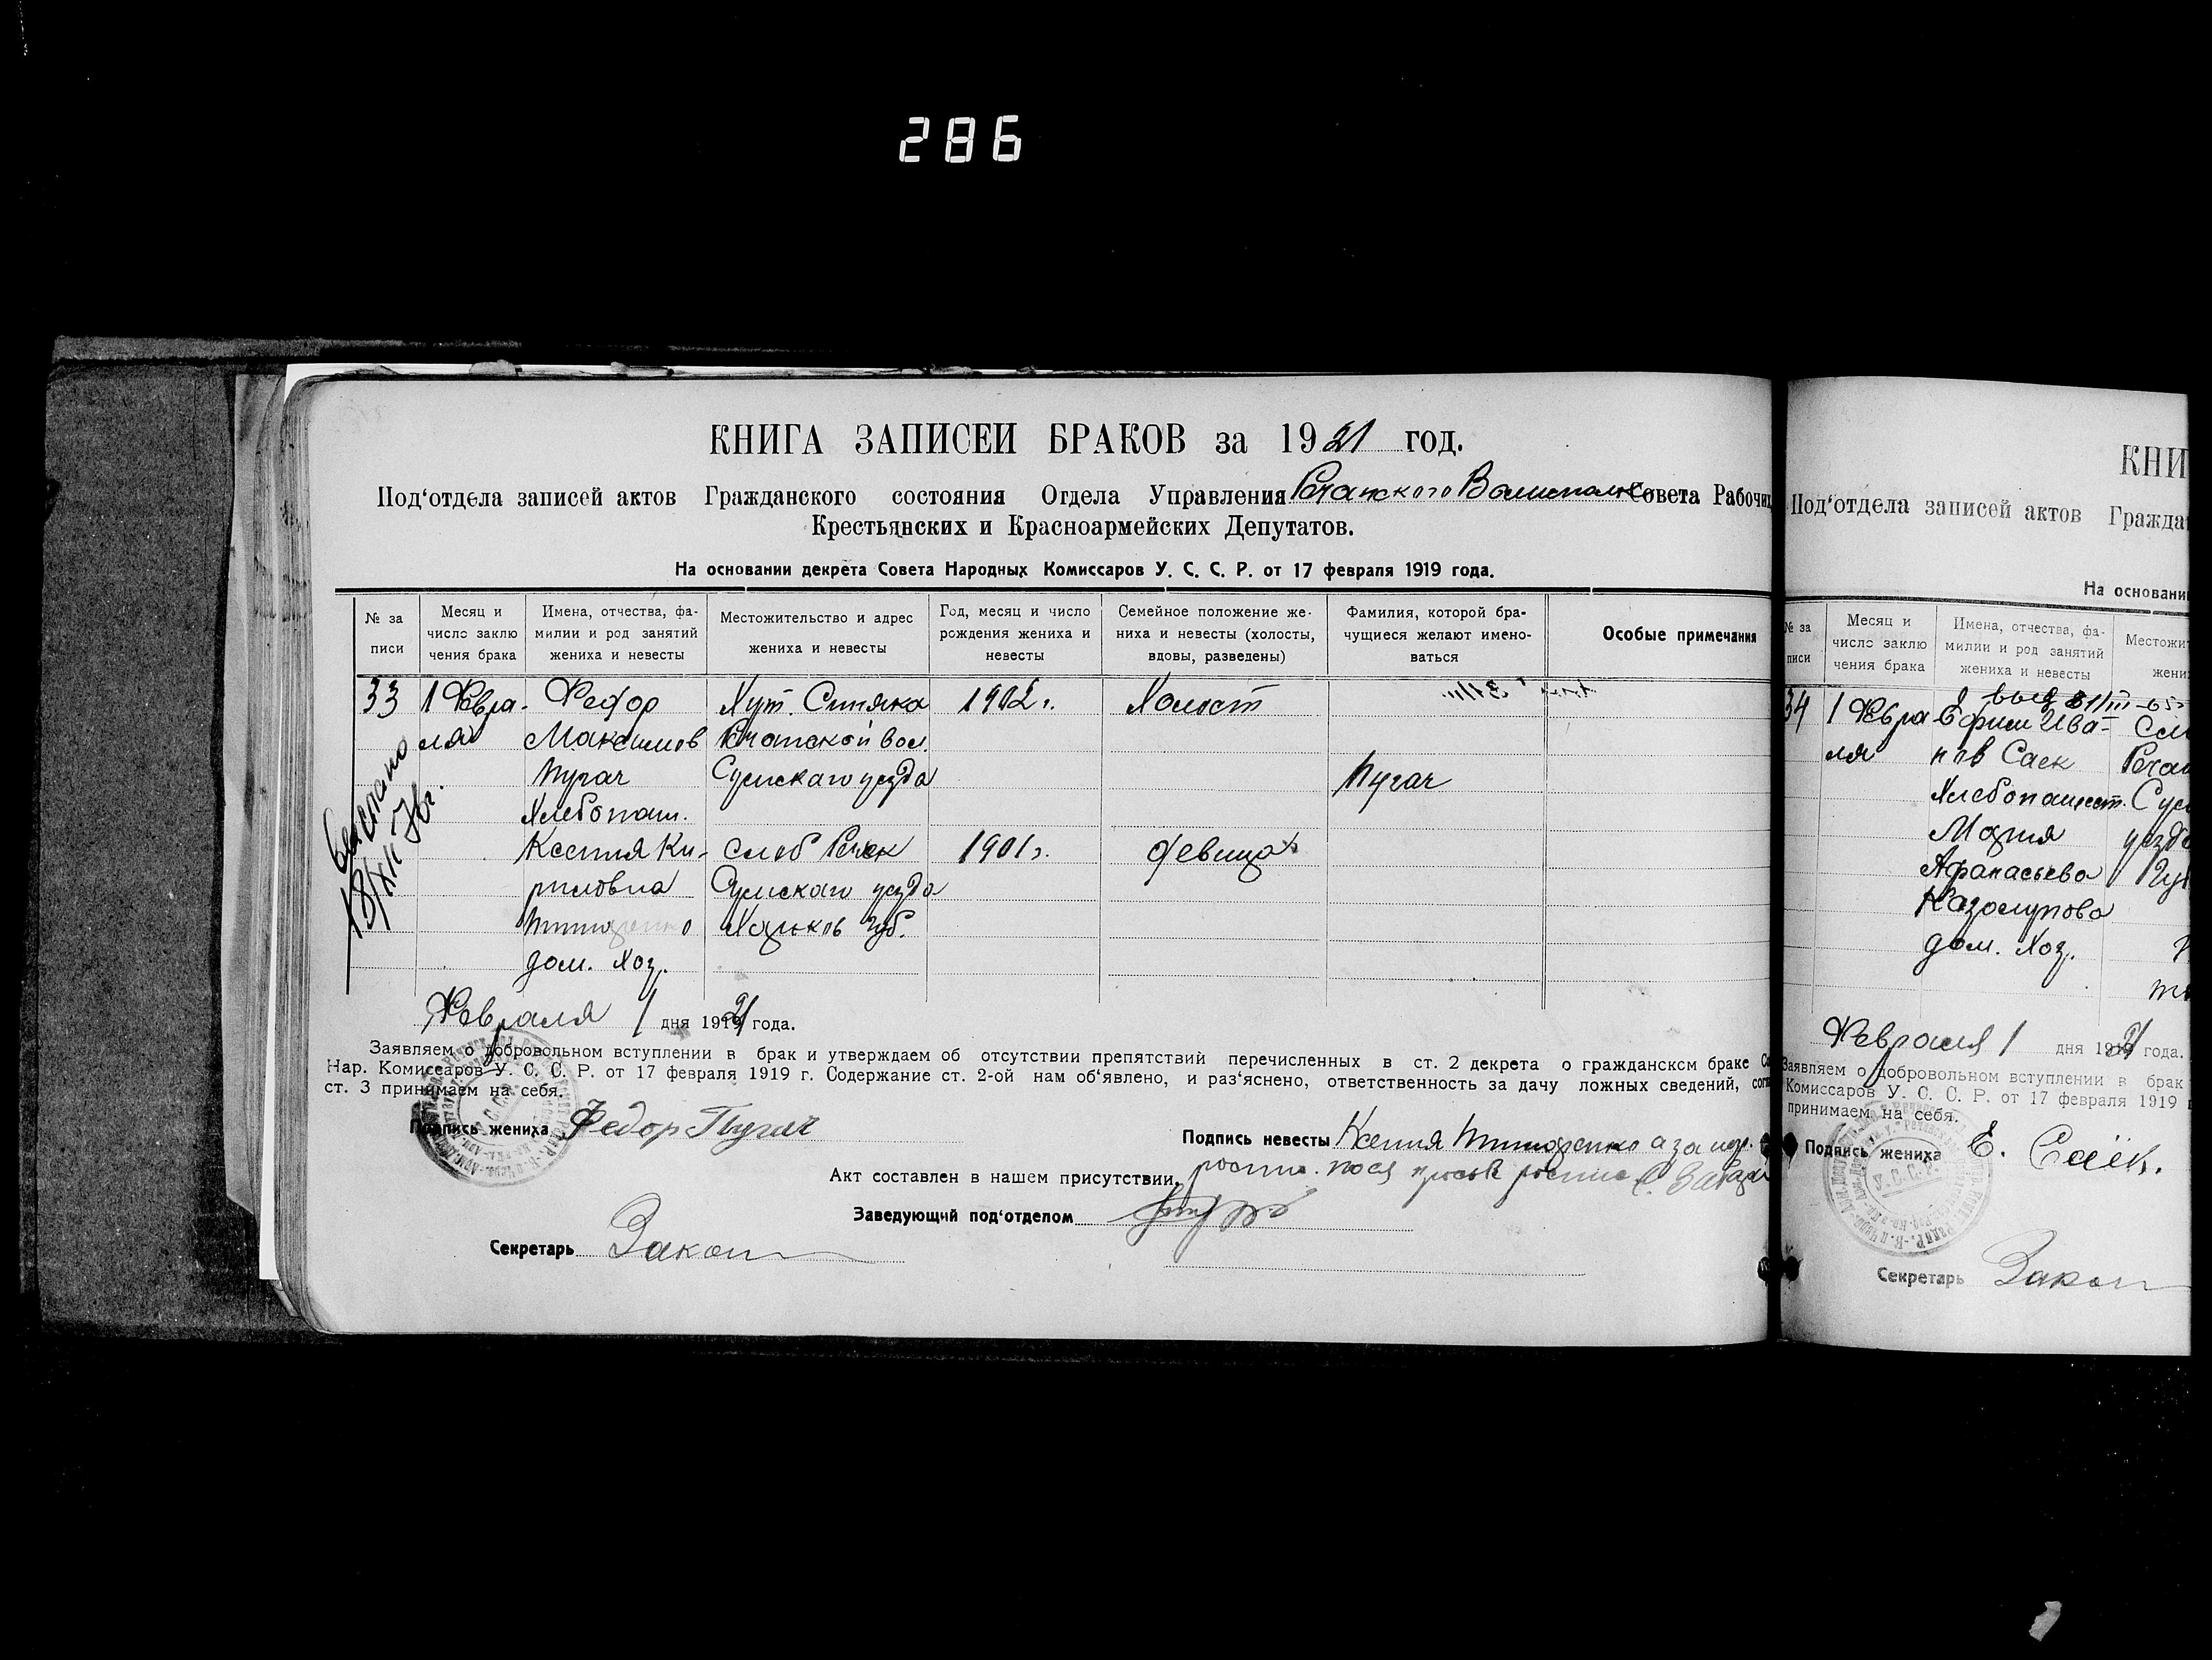 286
КНИГА ЗАПИСЕЙ БРАКОВ за 1921 год.
Под‘отдела записей актов Гражданского состояния Отдела Управления Речанского Волисполк Совета Рабочих
Крестьянских и Красноармейских Депутатов.
На основании декрета Совета Народных Комиссаров У. С. С. Р. от 17 февраля 1919 года.
№ за писи
Месяц и число заклю чения брака
Имена, отчества, фа- милии и род занятий жениха и невесты
Местожительство и адрес жениха и невесты
Год, месяц и число рождения жениха и невесты
Семейное положение же- ниха и невесты (холосты, вдовы, разведены)
Фамилия, которой бра- чущиеся желают имено- ваться
Особые примечания
33 1 Февра- Федор Хут. Синяка 1902 г. Холост
ля Максимов Речанской вол.
Пугач Сумскаго уезда Пугач
Хлебопаш.
Ксения Ки- слоб Речек 1901 г. девица
риловна Сумскаго уезда
Харьков губ.
дом. хоз.
18/XII-70г.
Февраля 1 дня 1921 года.
Заявляем о добровольном вступлении в брак и утверждаем об отсутствии препятствий перечисленных в ст. 2 декрета о гражданском браке
Нар. Комиссаров У. С. С. Р. от 17 февраля 1919 г. Содержание ст. 2-ой нам об‘явлено, и раз‘яснено, ответственность за дачу ложных сведений,
ст. 3 принимаем на себя.
Подпись жениха Федор Пугач
Подпись невесты Ксения а за
Акт составлен в нашем присутствии.
Заведующий под‘отделом
Секретарь
КНИ
Под‘отдела записей актов Гражда
На основани
№ за писи
Месяц и число заклю чения брака
Имена, отчества, фа- милии и род занятий жениха и невесты
Местожит
жени
34 1 Февра Ефим Ива-
ля нов Саек
Хлебопашест.
Мария
Афанасьева
дом. хоз.
Февраля 1 дня 1921 года.
Заявляем о добровольном вступлении в брак
Комиссаров У. С. С. Р. от 17 февраля 1919
принимаем на себя.
Подпись жениха Е. Саек.
Секретарь